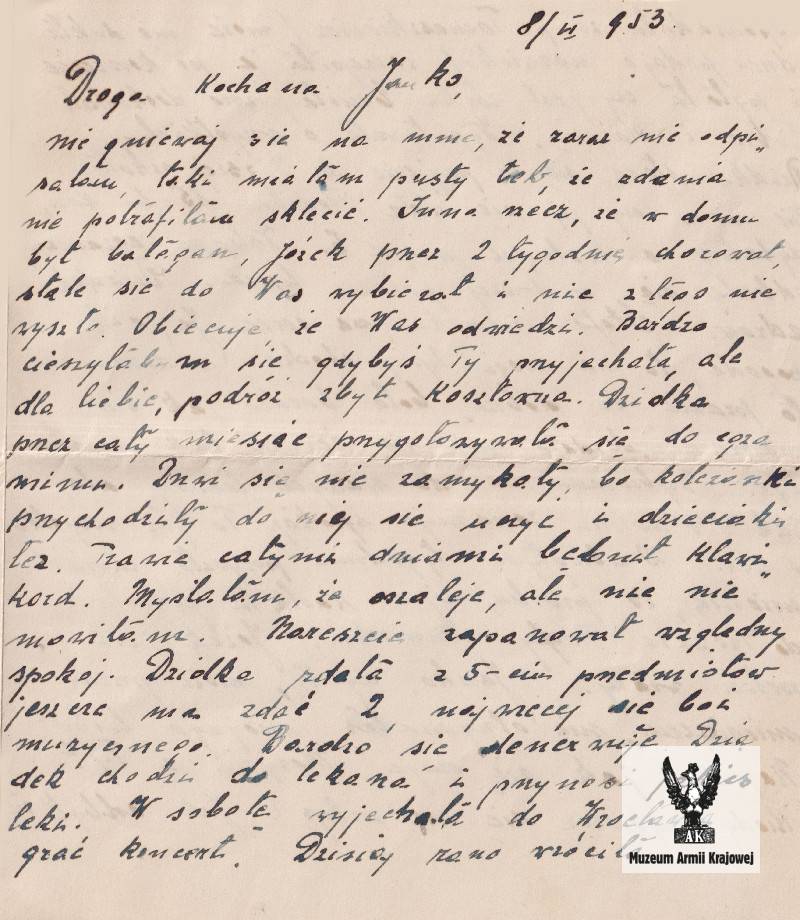 8/VI 953.
Droga Kochana Janko,
nie gniewaj sie na mnie, że zaraz nie odpi„
sałam, taki miałam pusty łeb, że zdania
nie potrafiłam sklecić. Inna rzecz, że w domu
był bałagan, Józek przez 2 tygodnie chorował,
stale sie do Was wybierał i nic z tego nie
wyszło. Obiecuje że Was odwiedzi. Bardzo
cieszyłabym sie gdybyś Ty przyjechała, ale
dla Ciebie, podróż zbyt kosztowna. Dzidka
przez cały miesiąc przygotowywała się do egza
minu. Drzwi się nie zamykały, bo koleżanki
przychodziły do niej sie uczyć i dzieciaki
też. Prawie całymi dniami bębnił klawi
kord. Myślałam, że oszaleje, ale nic nie"
mówiłam. Nareszcie zapanował względny
spokój. Dzidka zdała z 5-ciu przedmiotów
jeszcze ma zdać 2, najwięcej się boi
muzycznego. Bardzo się denerwuje. Dzia
dek chodzi do lekarza i przynosi
leki. W sobotę wyjechała do Wrocławia
grać koncert. Dzisiaj rano wróciła
AK
Muzeum Armii Krajowej